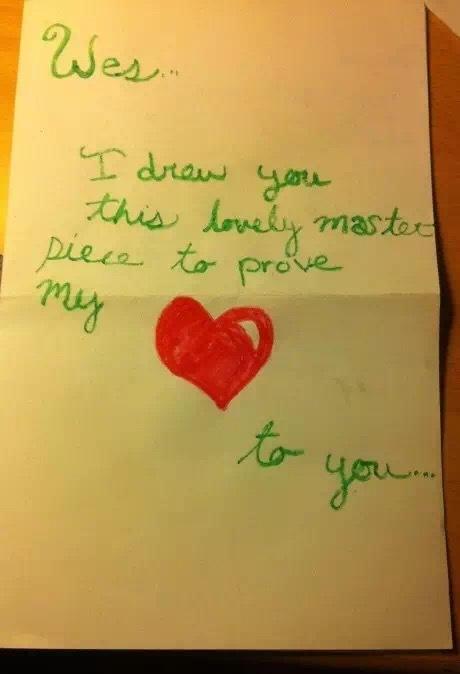 Wes...
I draw you
this lovely master
piece to prove
my
to you...